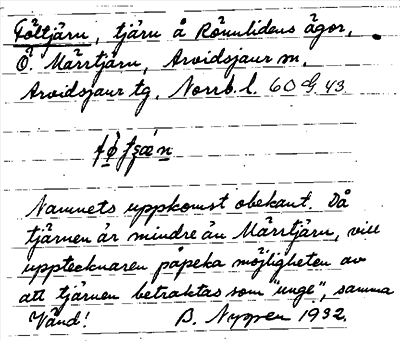 Föltjärn, tjärn å Rönnlidens ägor,
Ö. Märrtjärn, Arvidsjaur sn,
Arvidsjaur tg, Norrb. l. 60 G 43
Namnets uppkomst obekant. Då
tjärnen är mindre än Märrtjärn, vill
upptecknaren påpeka möjligheten av
att tjärnen betraktas som "unge", samma
Vänd! B. Nyppen 1932.